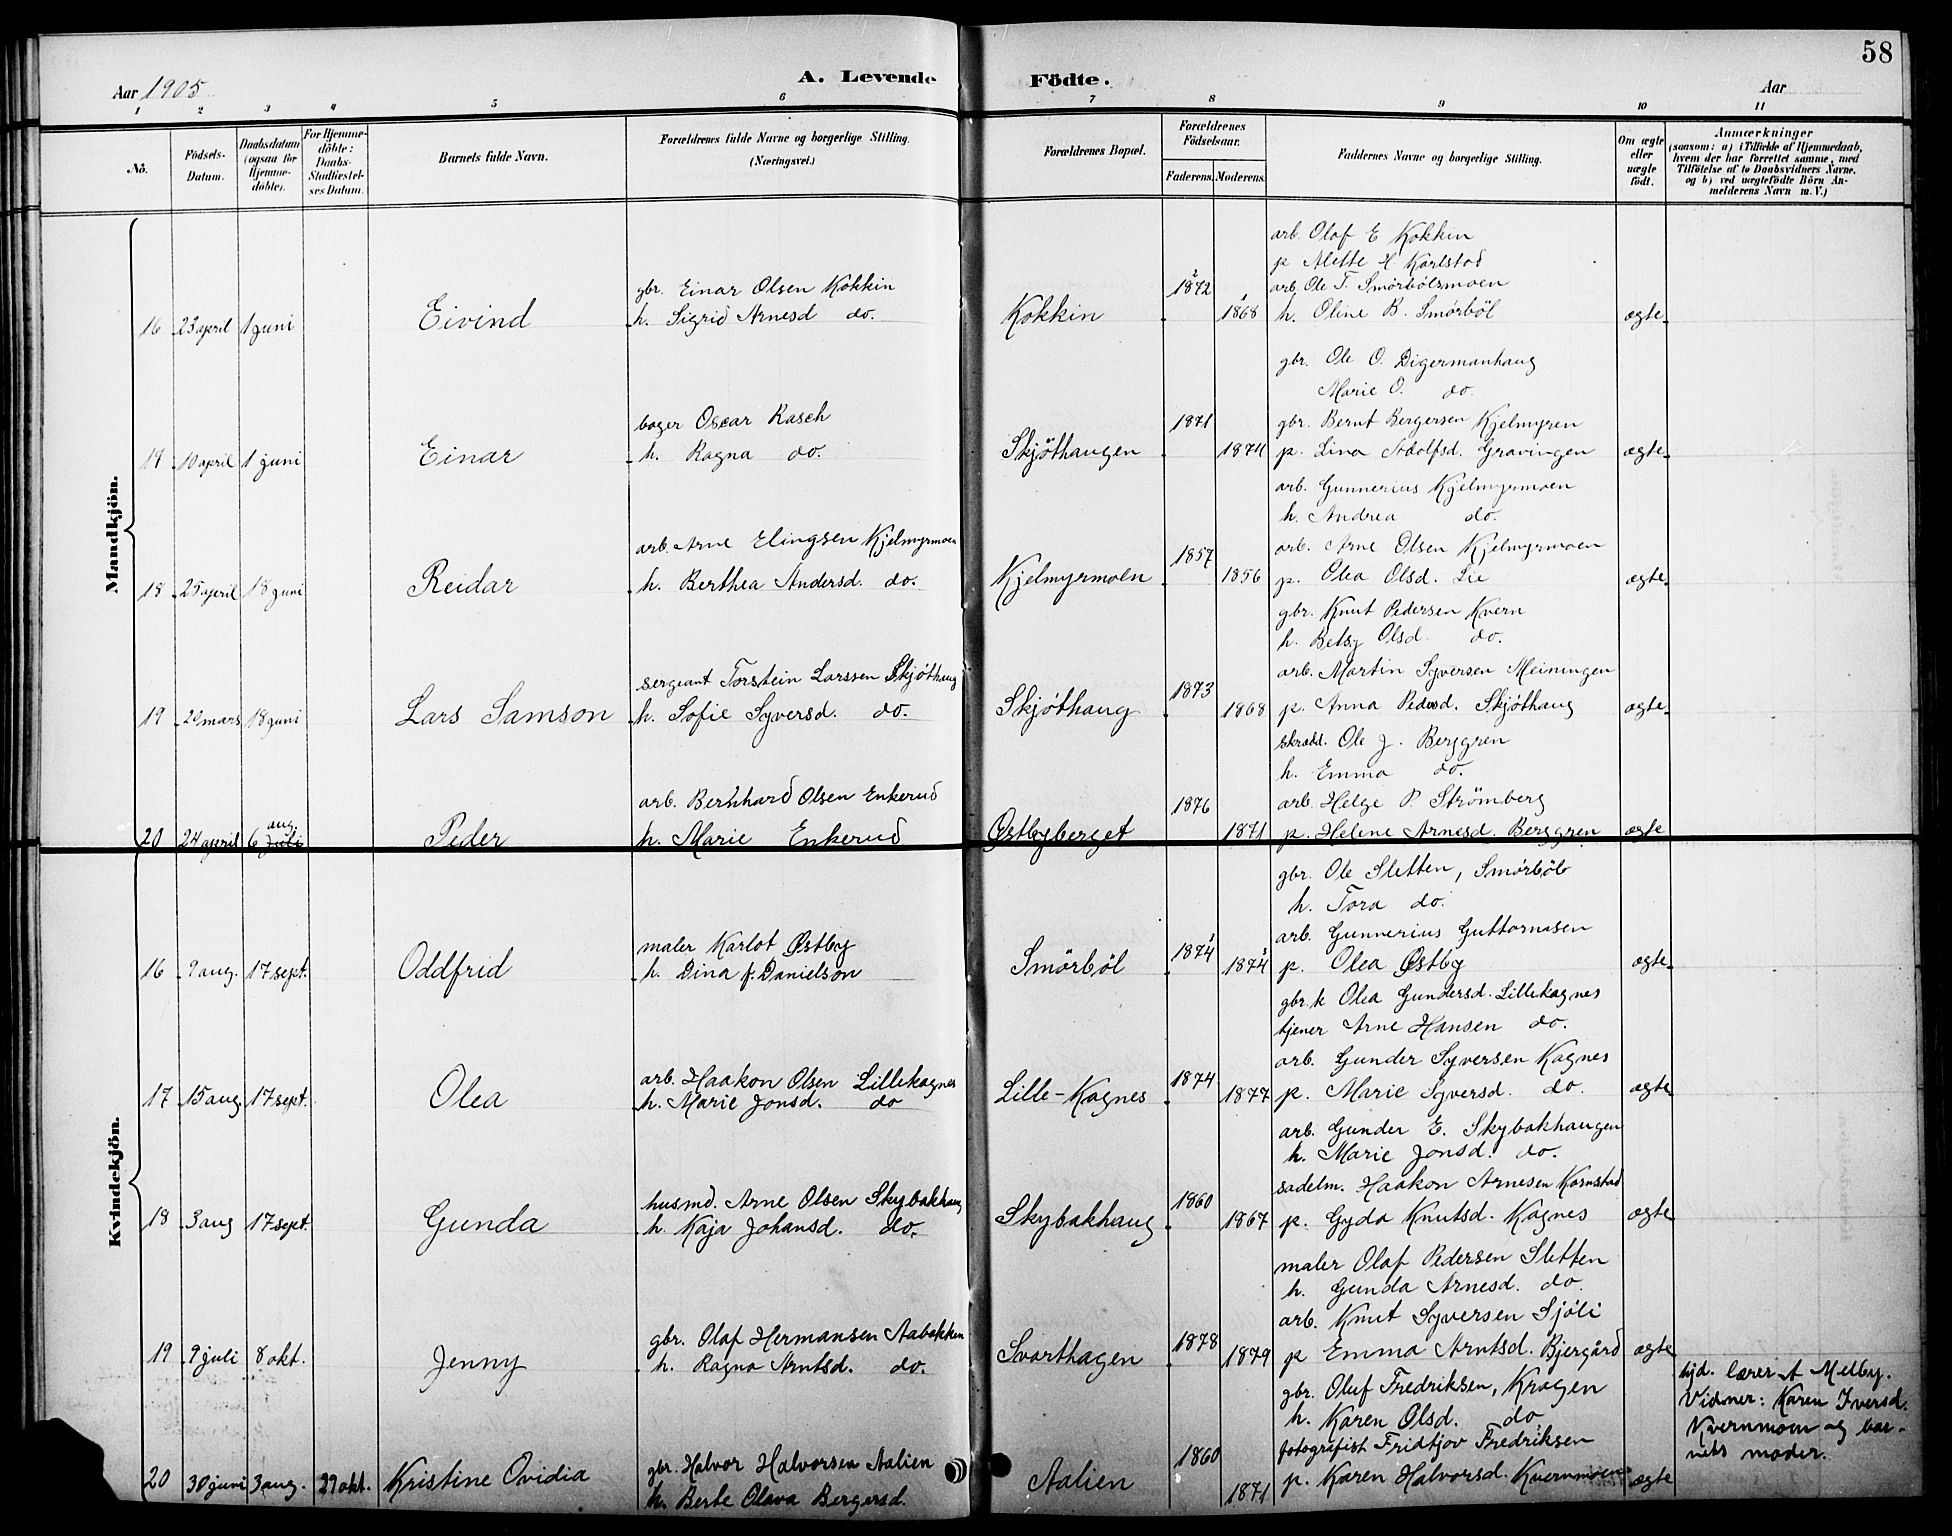 58
Aar 1905
A. Levende Födte.
Aar
1 2 3 4 5 6 7 8 9 10 11
No.
Födsels-Datum.
Daabsdatum (ogsaa for Hjemme-döbte).
For Hjemme-döbte: Daabs-Stadfæstel-ses Datum.
Barnets fulde Navn.
Forældrenes fulde Navne og borgerlige Stilling. (Næringsvei.)
Forældrenes Bopæl.
Forældrenes Födselsaar.
Faderens. Moderens.
Faddernes Navne og borgerlige Stilling.
Om ægte eller uægte födt.
Anmærkninger
(saasom: a) i Tilfælde af Hjemmedaab,
hvem der har forrettet samme, med
Tilföielse af to Daabsvidners Navne.
og b) ved uægtefödte Börn An-
melderens Navn m. V.)
Mandkjön.
arb. Olaf E Kokkin
p Alette H Karlstad
gbr. Einar Olsen Kokkin 1872 arb. Ole T. Smörbölsmoen
16 23 april 1 juni Eivind h. Sigrid Arnesd do. Kokkin 1868 h. Oline B. Smörböl ægte
gbr. Ole O. Digermanhaug
Marie O. do.
bager Oscar Rasch 1871 gbr. Bernt Bergersen Kjelmyren
10 april 1 juni Einar h. Ragna do. Skjöthaugen 1874 p. Lina Adolfsd. Gravingen ægte
arb. Gunnerius Kjelmyrmoen
h. Andrea do.
arb. Arne Elingsen Kjelmyrmoen 1857 arb. Arne Olsen Kjelmyrmoen
18 25 april 18 juni Reidar h. Berthea Andersd. do. Kjelmyrmoen 1856 p. Olea Olsd. Lie ægte
gbr. Knut Pedersen Kvern
h. Betsy Olsd. do.
sergeant Torstein Larssen Skjöthaug 1873 arb. Martin Syversen Meiningen
19 mars 18 juni Lars Samson h. Sofie Syversd. do. Skjöthaug 1868 p. Anna Pedersd. Skjöthaug ægte
skrædd. Ole J. Berggren
h. Emma do.
arb. Bernhard Olsen Enkerud 1876 arb. Helge P. Strömberg
20 24 april 6 aug. juli Peder h. Marie Enkerud Østbyberget 1871 p. Helene Arnesd. Berggren ægte
Kvindekjön.
gbr. Ole Sletten, Smörböl
h. Tora do.
maler Karlot Østby 1874 arb. Gunnerius Guttormsen
16 9 aug. 17 sept. Oddfrid h. Dina f. Danielson Smörböl 1874 p. Olea Østby ægte
gbr.k Olea Gundersd. Lillekagnes
tjener Arne Hansen do.
arb. Haakon Olsen Lillekagnes 1874 arb. Gunder Syversen Kagnes
17 15 aug. 17 sept. Olea h. Marie Jonsd. do Lille-Kagnes 1877 p. Marie Syversd. do. ægte
arb. Gunder E. Skybakhaugen
h. Marie Jonsd. do.
husmd. Arne Olsen Skybakhaug 1860 sadelm. Haakon Arnesen Karnstad
18 3 aug 17 sept. Gunda h. Kaja Johansd. do. Skybakhaug 1867 p. Gyda Knutsd. Kagnes ægte
maler Olaf Pedersen Sletten
h. Gunda Arnesd. do
gbr. Olaf Hermansen Aabakken 1878 arb. Knut Syversen Sjöli
19 9 juli 8 okt. Jenny h. Ragna Arntsd. do. Svarthagen 1879 p Emma Arntsd. Bjergård ægte
gbr. Oluf Fredriksen, Kragen
h. Karen Olsd. do
gbr. Halvor Halvorsen Aalien 1860 fotografist Fridtjov Fredriksen
20 30 juni 3 aug. 29 okt. Kristine Ovidia h. Berte Olava Bergersd. Aalien 1871 p. Karen Halvorsd. Kvernmoen ægte
hjd. lærer A Melby.
Vidner: Karen Iversd.
Kvernmoen og bar-
nets moder.